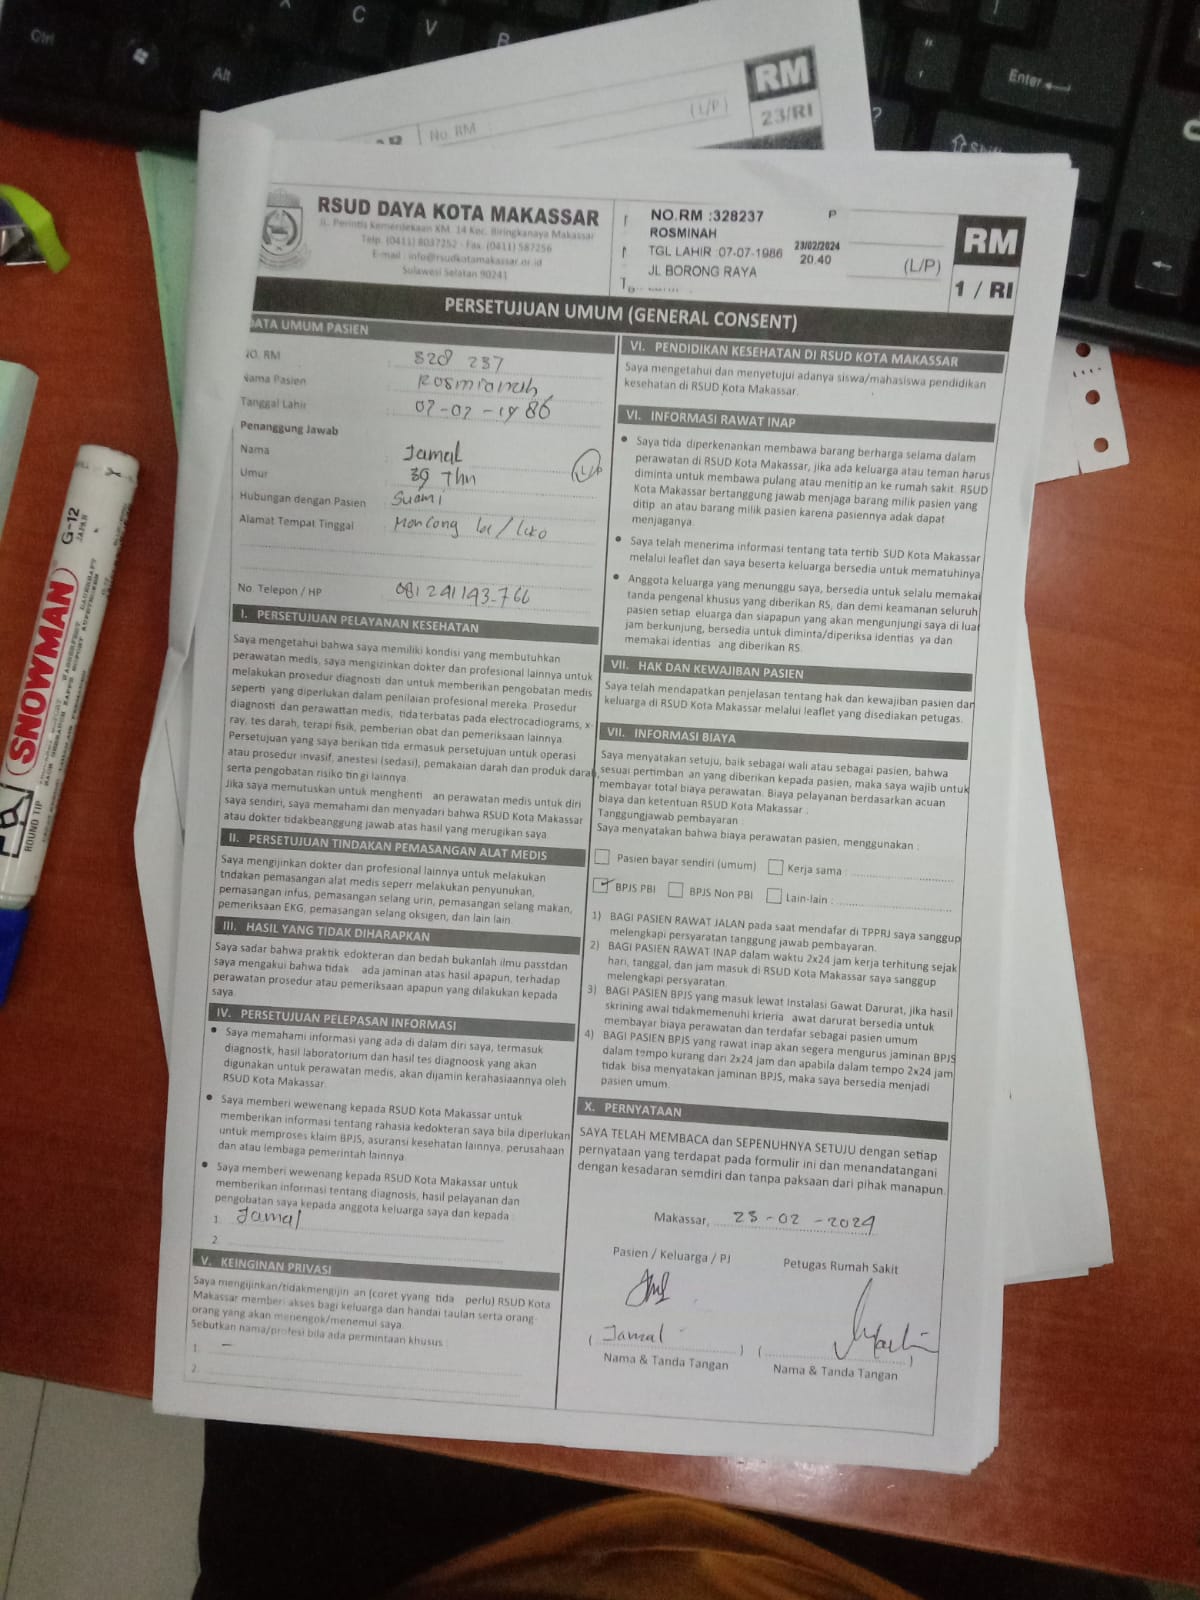 Ctrl
Alt
C
V
B
Enter
No. RM :
(L/P)
RM
23/RI
RSUD DAYA KOTA MAKASSAR
JL. Perintis Kemerdekaan KM. 14 Kec. Biringkanaya Makassar
Telp. (0411) 8037252 - Fax. (0411) 587256
E-mail : info@rsudkotamakassar.or.id
Sulawesi Selatan 90241
NO.RM :328237 P
ROSMINAH
TGL LAHIR 07-07-1986 23/02/2024
20.40
JL BORONG RAYA
(L/P)
RM
1 / RI
PERSETUJUAN UMUM (GENERAL CONSENT)
DATA UMUM PASIEN
NO. RM : 328 237
Nama Pasien : Rosmianah
Tanggal Lahir : 07-07-1986
Penanggung Jawab
Nama : Jamal (L/P)
Umur : 39 Thn
Hubungan dengan Pasien : Suami
Alamat Tempat Tinggal : Moncong
No. Telepon / HP : 081 241 193-766
I. PERSETUJUAN PELAYANAN KESEHATAN
Saya mengetahui bahwa saya memiliki kondisi yang membutuhkan
perawatan medis, saya mengizinkan dokter dan profesional lainnya untuk
melakukan prosedur diagnosti dan untuk memberikan pengobatan medis
seperti yang diperlukan dalam penilaian profesional mereka. Prosedur
diagnosti dan perawattan medis, tida terbatas pada electrocadiograms, x-
ray, tes darah, terapi fisik, pemberian obat dan pemeriksaan lainnya.
Persetujuan yang saya berikan tida ermasuk persetujuan untuk operasi
atau prosedur invasif, anestesi (sedasi), pemakaian darah dan produk darah,
serta pengobatan risiko tin gi lainnya.
Jika saya memutuskan untuk menghenti an perawatan medis untuk diri
saya sendiri, saya memahami dan menyadari bahwa RSUD Kota Makassar
atau dokter tidakbeanggung jawab atas hasil yang merugikan saya.
II. PERSETUJUAN TINDAKAN PEMASANGAN ALAT MEDIS
Saya mengijinkan dokter dan profesional lainnya untuk melakukan
tndakan pemasangan alat medis seperr melakukan penyunukan,
pemasangan infus, pemasangan selang urin, pemasangan selang makan,
pemeriksaan EKG, pemasangan selang oksigen, dan lain lain.
III. HASIL YANG TIDAK DIHARAPKAN
Saya sadar bahwa praktik edokteran dan bedah bukanlah ilmu passtdan
saya mengakui bahwa tidak ada jaminan atas hasil apapun, terhadap
perawatan prosedur atau pemeriksaan apapun yang dilakukan kepada
saya.
IV. PERSETUJUAN PELEPASAN INFORMASI
• Saya memahami informasi yang ada di dalam diri saya, termasuk
diagnostk, hasil laboratorium dan hasil tes diagnoosk yang akan
digunakan untuk perawatan medis, akan dijamin kerahasiaannya oleh
RSUD Kota Makassar.
• Saya memberi wewenang kepada RSUD Kota Makassar untuk
memberikan informasi tentang rahasia kedokteran saya bila diperlukan
untuk memproses klaim BPJS, asuransi kesehatan lainnya, perusahaan
dan atau lembaga pemerintah lainnya.
• Saya memberi wewenang kepada RSUD Kota Makassar untuk
memberikan informasi tentang diagnosis, hasil pelayanan dan
pengobatan saya kepada anggota keluarga saya dan kepada :
1. Jamal
2.
V. KEINGINAN PRIVASI
Saya mengijinkan/tidakmengijin an (coret yyang tida perlu) RSUD Kota
Makassar memberi akses bagi keluarga dan handai taulan serta orang-
orang yang akan menengok/menemui saya.
Sebutkan nama/profesi bila ada permintaan khusus :
1. -
2.
VI. PENDIDIKAN KESEHATAN DI RSUD KOTA MAKASSAR
Saya mengetahui dan menyetujui adanya siswa/mahasiswa pendidikan
kesehatan di RSUD Kota Makassar.
VI. INFORMASI RAWAT INAP
• Saya tida diperkenankan membawa barang berharga selama dalam
perawatan di RSUD Kota Makassar, jika ada keluarga atau teman harus
diminta untuk membawa pulang atau menitip an ke rumah sakit. RSUD
Kota Makassar bertanggung jawab menjaga barang milik pasien yang
ditip an atau barang milik pasien karena pasiennya adak dapat
menjaganya.
• Saya telah menerima informasi tentang tata tertib SUD Kota Makassar
melalui leaflet dan saya beserta keluarga bersedia untuk mematuhinya
• Anggota keluarga yang menunggu saya, bersedia untuk selalu memakai
tanda pengenal khusus yang diberikan RS, dan demi keamanan seluruh
pasien setiap eluarga dan siapapun yang akan mengunjungi saya di luar
jam berkunjung, bersedia untuk diminta/diperiksa identias ya dan
memakai identias ang diberikan RS.
VII. HAK DAN KEWAJIBAN PASIEN
Saya telah mendapatkan penjelasan tentang hak dan kewajiban pasien dan
keluarga di RSUD Kota Makassar melalui leaflet yang disediakan petugas.
VII. INFORMASI BIAYA
Saya menyatakan setuju, baik sebagai wali atau sebagai pasien, bahwa
sesuai pertimban an yang diberikan kepada pasien, maka saya wajib untuk
membayar total biaya perawatan. Biaya pelayanan berdasarkan acuan
biaya dan ketentuan RSUD Kota Makassar :
Tanggungjawab pembayaran :
Saya menyatakan bahwa biaya perawatan pasien, menggunakan :
Pasien bayar sendiri (umum) Kerja sama :
BPJS PBI BPJS Non PBI Lain-lain :
1) BAGI PASIEN RAWAT JALAN pada saat mendafar di TPPRJ saya sanggup
melengkapi persyaratan tanggung jawab pembayaran.
2) BAGI PASIEN RAWAT INAP dalam waktu 2x24 jam kerja terhitung sejak
hari, tanggal, dan jam masuk di RSUD Kota Makassar saya sanggup
melengkapi persyaratan.
3) BAGI PASIEN BPJS yang masuk lewat Instalasi Gawat Darurat, jika hasil
skrining awal tidakmemenuhi krieria awat darurat bersedia untuk
membayar biaya perawatan dan terdafar sebagai pasien umum
4) BAGI PASIEN BPJS yang rawat inap akan segera mengurus jaminan BPJS
dalam tempo kurang dari 2x24 jam dan apabila dalam tempo 2x24 jam
tidak bisa menyatakan jaminan BPJS, maka saya bersedia menjadi
pasien umum.
X. PERNYATAAN
SAYA TELAH MEMBACA dan SEPENUHNYA SETUJU dengan setiap
pernyataan yang terdapat pada formulir ini dan menandatangani
dengan kesadaran semdiri dan tanpa paksaan dari pihak manapun.
Makassar, 23-02-2024
Pasien / Keluarga / PJ Petugas Rumah Sakit
( Jamal ) ( )
Nama & Tanda Tangan Nama & Tanda Tangan
SNOWMAN
G-12
JAPAN
ROUND TIP